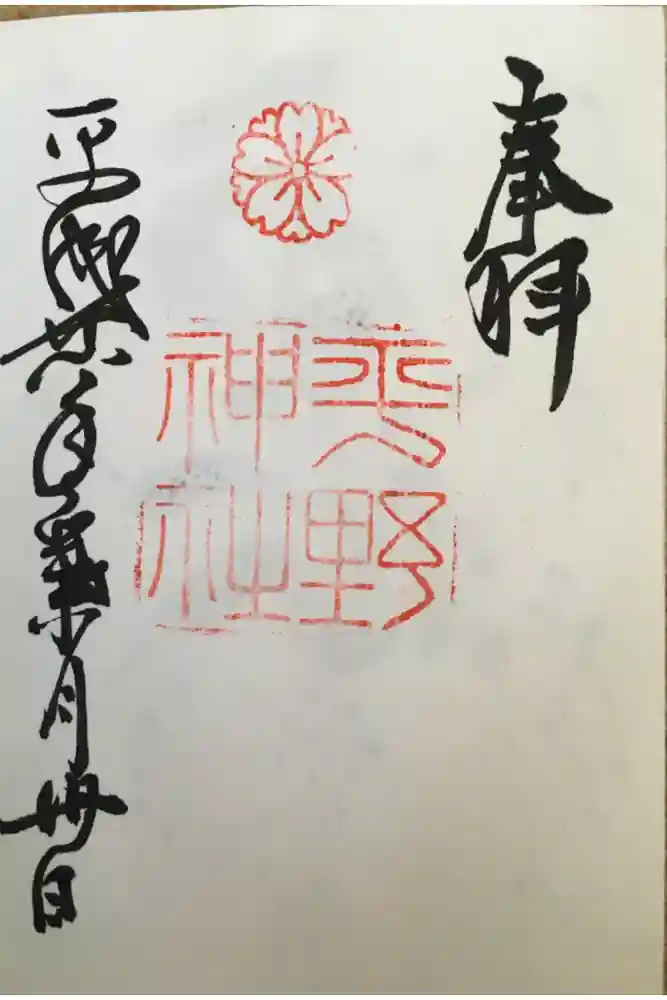 奉拝
平野
神社
平成廿年葉月卅日